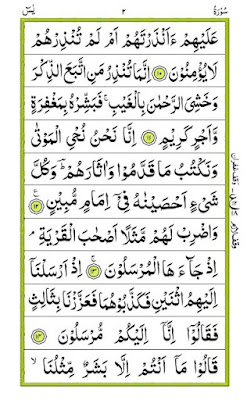 سُوْرَةُ ٢ يٰسٓ
عَلَيْهِمْ ءَاَنْذَرْتَهُمْ اَمْ لَمْ تُنْذِرْهُمْ
لَا يُؤْمِنُوْنَ ﴿١٠﴾ اِنَّمَا تُنْذِرُ مَنِ اتَّبَعَ الذِّكْرَ
وَخَشِىَ الرَّحْمٰنَ بِالْغَيْبِ ۚ فَبَشِّرْهُ بِمَغْفِرَةٍ
وَّاَجْرٍ كَرِيْمٍ ﴿١١﴾ اِنَّا نَحْنُ نُحْىِ الْمَوْتٰى
وَنَكْتُبُ مَا قَدَّمُوْا وَاٰثَارَهُمْ ؕ وَكُلَّ
شَىْءٍ اَحْصَيْنٰهُ فِىْۤ اِمَامٍ مُّبِيْنٍ ﴿١٢﴾
وَاضْرِبْ لَهُمْ مَّثَلًا اَصْحٰبَ الْقَرْيَةِ ۘ
اِذْ جَآءَهَا الْمُرْسَلُوْنَ ﴿١٣﴾ اِذْ اَرْسَلْنَاۤ
اِلَيْهِمُ اثْنَيْنِ فَكَذَّبُوْهُمَا فَعَزَّزْنَا بِثَالِثٍ
فَقَالُوْۤا اِنَّاۤ اِلَيْكُمْ مُّرْسَلُوْنَ ﴿١٤﴾
قَالُوْا مَاۤ اَنْتُمْ اِلَّا بَشَرٌ مِّثْلُنَا ۙ